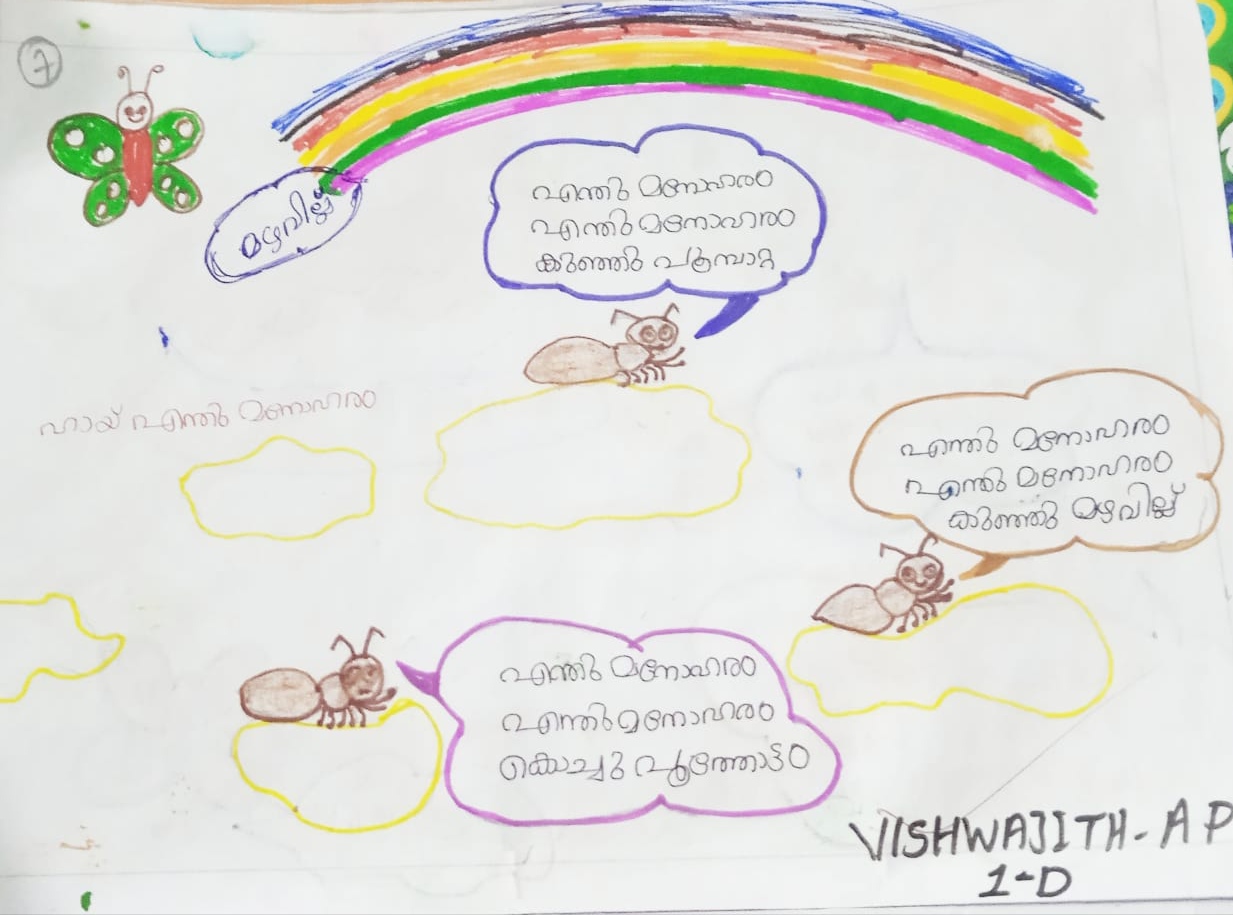 7
മഴവില്ല്
എന്തു മനോഹരം
എന്തു മനോഹരം
കുഞ്ഞു പൂമ്പാറ്റ
ഹായ് എന്തു മനോഹരം
എന്തു മനോഹരം
എന്തു മനോഹരം
കുഞ്ഞു മഴവില്ല്
എന്തു മനോഹരം
എന്തു മനോഹരം
കൊച്ചു പൂന്തോട്ടം
VISHWAJITH-AP
1-D